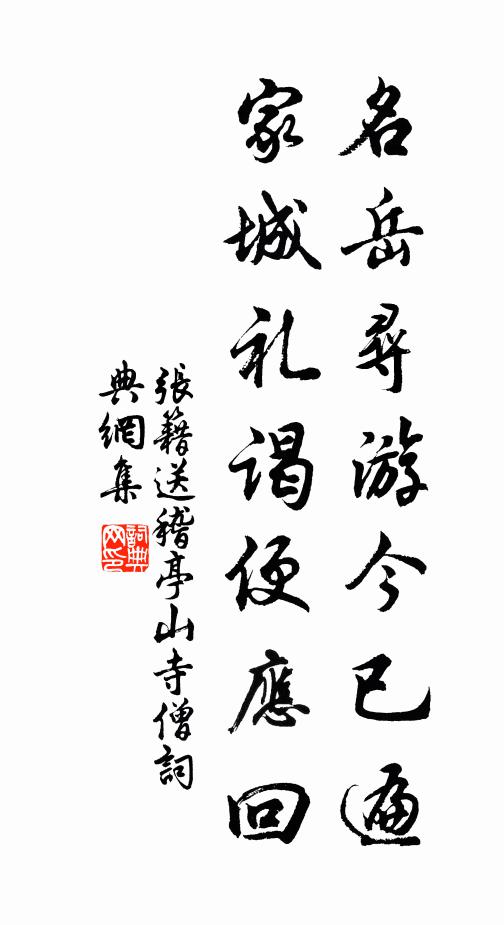 名岳尋游今已遍
家城礼谒便應回
張籍送稽亭山寺僧詞
典網集
詞典
网印